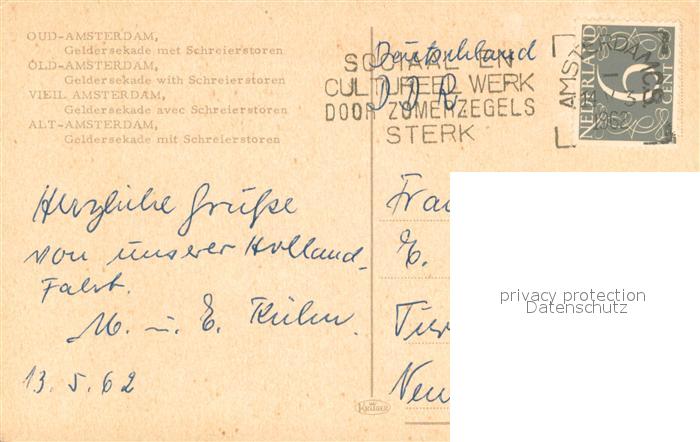 OUD-AMSTERDAM,
Geldersekade met Schreierstoren
OLD-AMSTERDAM,
Geldersekade with Schreierstoren
VIEIL AMSTERDAM,
Geldersekade avec Schreierstoren
ALT-AMSTERDAM,
Geldersekade mit Schreierstoren
Deutschland
DDR
SOCIAAL EN
CULTUREEL WERK
DOOR ZOMERZEGELS
STERK
AMSTERDAM CS
1962
NEDERLAND
6
Herzliche Grüße
von unserer Holland-
Fahrt.
M. u. E. Kühn.
13.5.62
Frau
E.
Neu
Krüger
privacy protection
Datenschutz